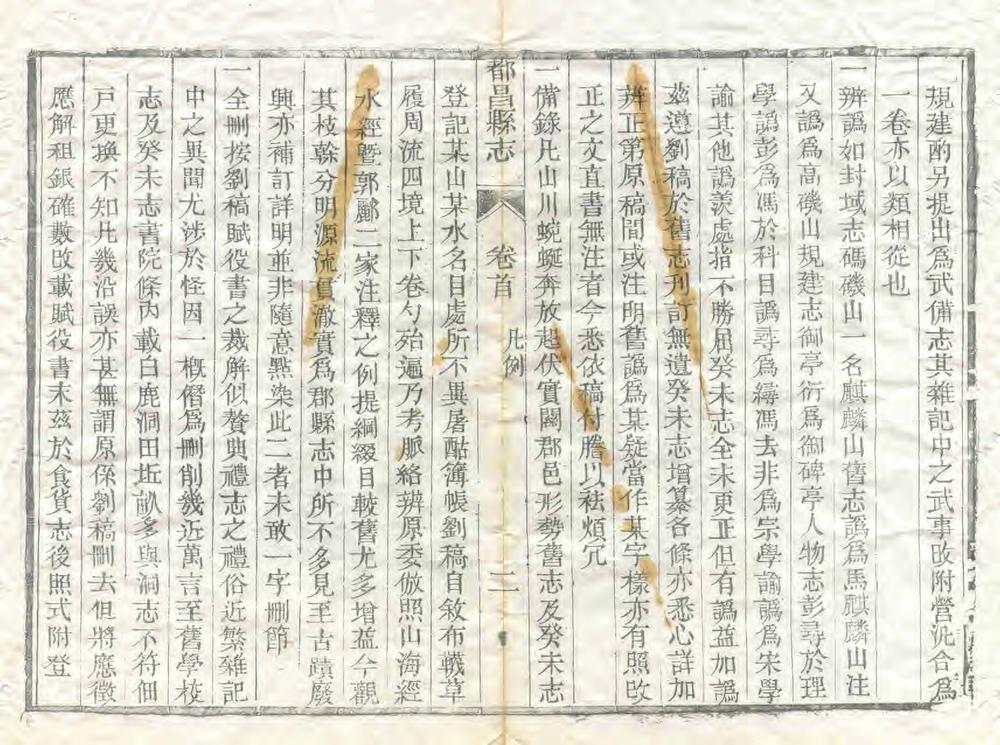 規建酌另提出爲武備志其雜記中之武事改附營汛合爲
一卷亦以類相從也
一辨譌如封域志碼磯山一名麒麟山舊志譌爲馬麒麟山注
又譌爲畐磯山規建志御亭衍爲御碑亭人物志彭尋於理
學譌彭爲馮於科目譌尋爲縟馮去非爲宗學諭譌爲宋學
諭其他譌羨處指不勝屈癸未志全未更正但有譌益加譌
茲遵劉稿於舊志刋訂無遺癸未志增纂各條亦悉心詳加
辨正第原稿間或注明舊譌爲某疑當作某字樣亦有照改
正之文直書無注者今悉依稿付謄以袪煩冗
一備錄凡山川蜿蜒奔放起伏實關郡邑形勢舊志及癸未志
都昌縣志 卷首 凡例 二
登記某山某水名目處所不異屠酤簿帳劉稿自敘布韈草
履周流四境上下卷勺殆遍乃考脈絡辨原委倣照山海經
水經暨郭酈二家注釋之例提綱綴目較舊尤多增益今觀
其枝幹分明源流貫澈實爲郡縣志中所不多見至古蹟廢
興亦補訂詳明並非隨意點染此二者未敢一字刪節
一全刪按劉稿賦役書之裁解似贅典禮志之禮俗近繁雜記
中之異聞尤涉於怪因一槪僭爲刪削幾近萬言至舊學校
志及癸未志書院條內載白鹿洞田坵畝多與洞志不符佃
戸更換不知凡幾沿誤亦甚無謂原係劉稿刪去但將應徵
應解租銀確數改載賦役書末茲於食貨志後照式附登